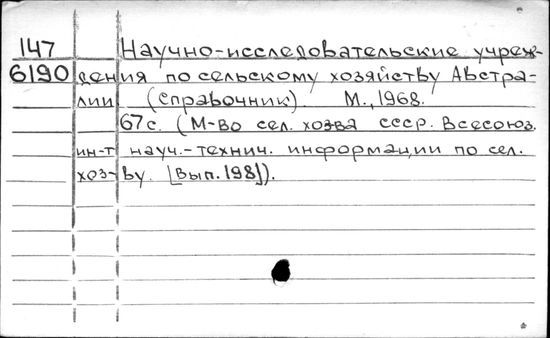 147 Научно-исследовательские учреж-
6190 дения по сельскому хозяйству Австра-
лии (справочник). М., 1968.
67с. (М-во сел. хоз-ва СССР. Всесоюз.
ин-т науч.-технич. информации по сел.
хоз-ву. [Вып. 198]).